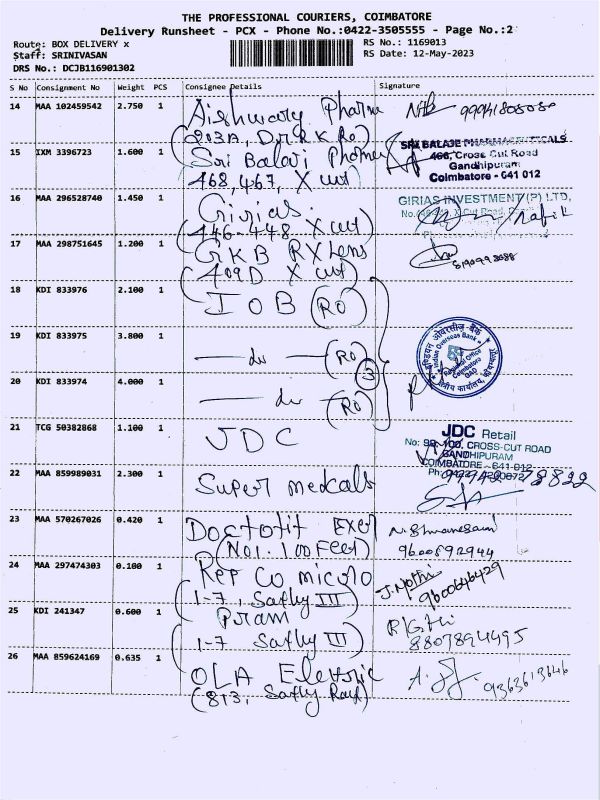 THE PROFESSIONAL COURIERS, COIMBATORE
Delivery Runsheet - PCX - Phone No.:0422-3505555 - Page No.:2
Route: BOX DELIVERY x
RS No.: 1169013
Staff: SRINIVASAN
RS Date: 12-May-2023
DRS No.: DCJB116901302
S No Consignment No Weight PCS Consignee Details Signature
14 MAA 102459542 2.750 1 Aishwary Pharma
(803A, D.r R K Ro)
15 IXM 3396723 1.600 1 Sri Balaji Pharma
468,467, X cut
SRI BALAJE PHARMACEUTICALS
466, Cross Cut Road
Gandhipuram
Coimbatore - 641 012
16 MAA 296528740 1.450 1 Girias.
(446-448 X cut)
GIRIAS INVESTMENT (P) LTD,
17 MAA 298751645 1.200 1 GKB RX Lens
(409D X cut)
18 KDI 833976 2.100 1 IOB (RO)
19 KDI 833975 3.800 1 — do — (RO)
3
20 KDI 833974 4.000 1 — do — (RO)
इंडियन ओवरसीज़ बैंक
Indian Overseas Bank
Regional Office
Coimbatore
क्षेत्रीय कार्यालय,
21 TCG 50382868 1.100 1 JDC
JDC Retail
No: 99-100, CROSS-CUT ROAD
GANDHIPURAM
COIMBATORE - 641 012
22 MAA 859989031 2.300 1 Super medcals
78822
23 MAA 570267026 0.420 1 Doctotit Exer
(No1. 100 Feet)
9600892944
24 MAA 297474303 0.100 1 Rep Co micro
(1-7, Sathy III)
J. Mothi
9600646429
25 KDI 241347 0.600 1 Pram
(1-7 Sathy III)
8807894495
26 MAA 859624169 0.635 1 OLA Eletric
(813, Sathy Road)
9363613646